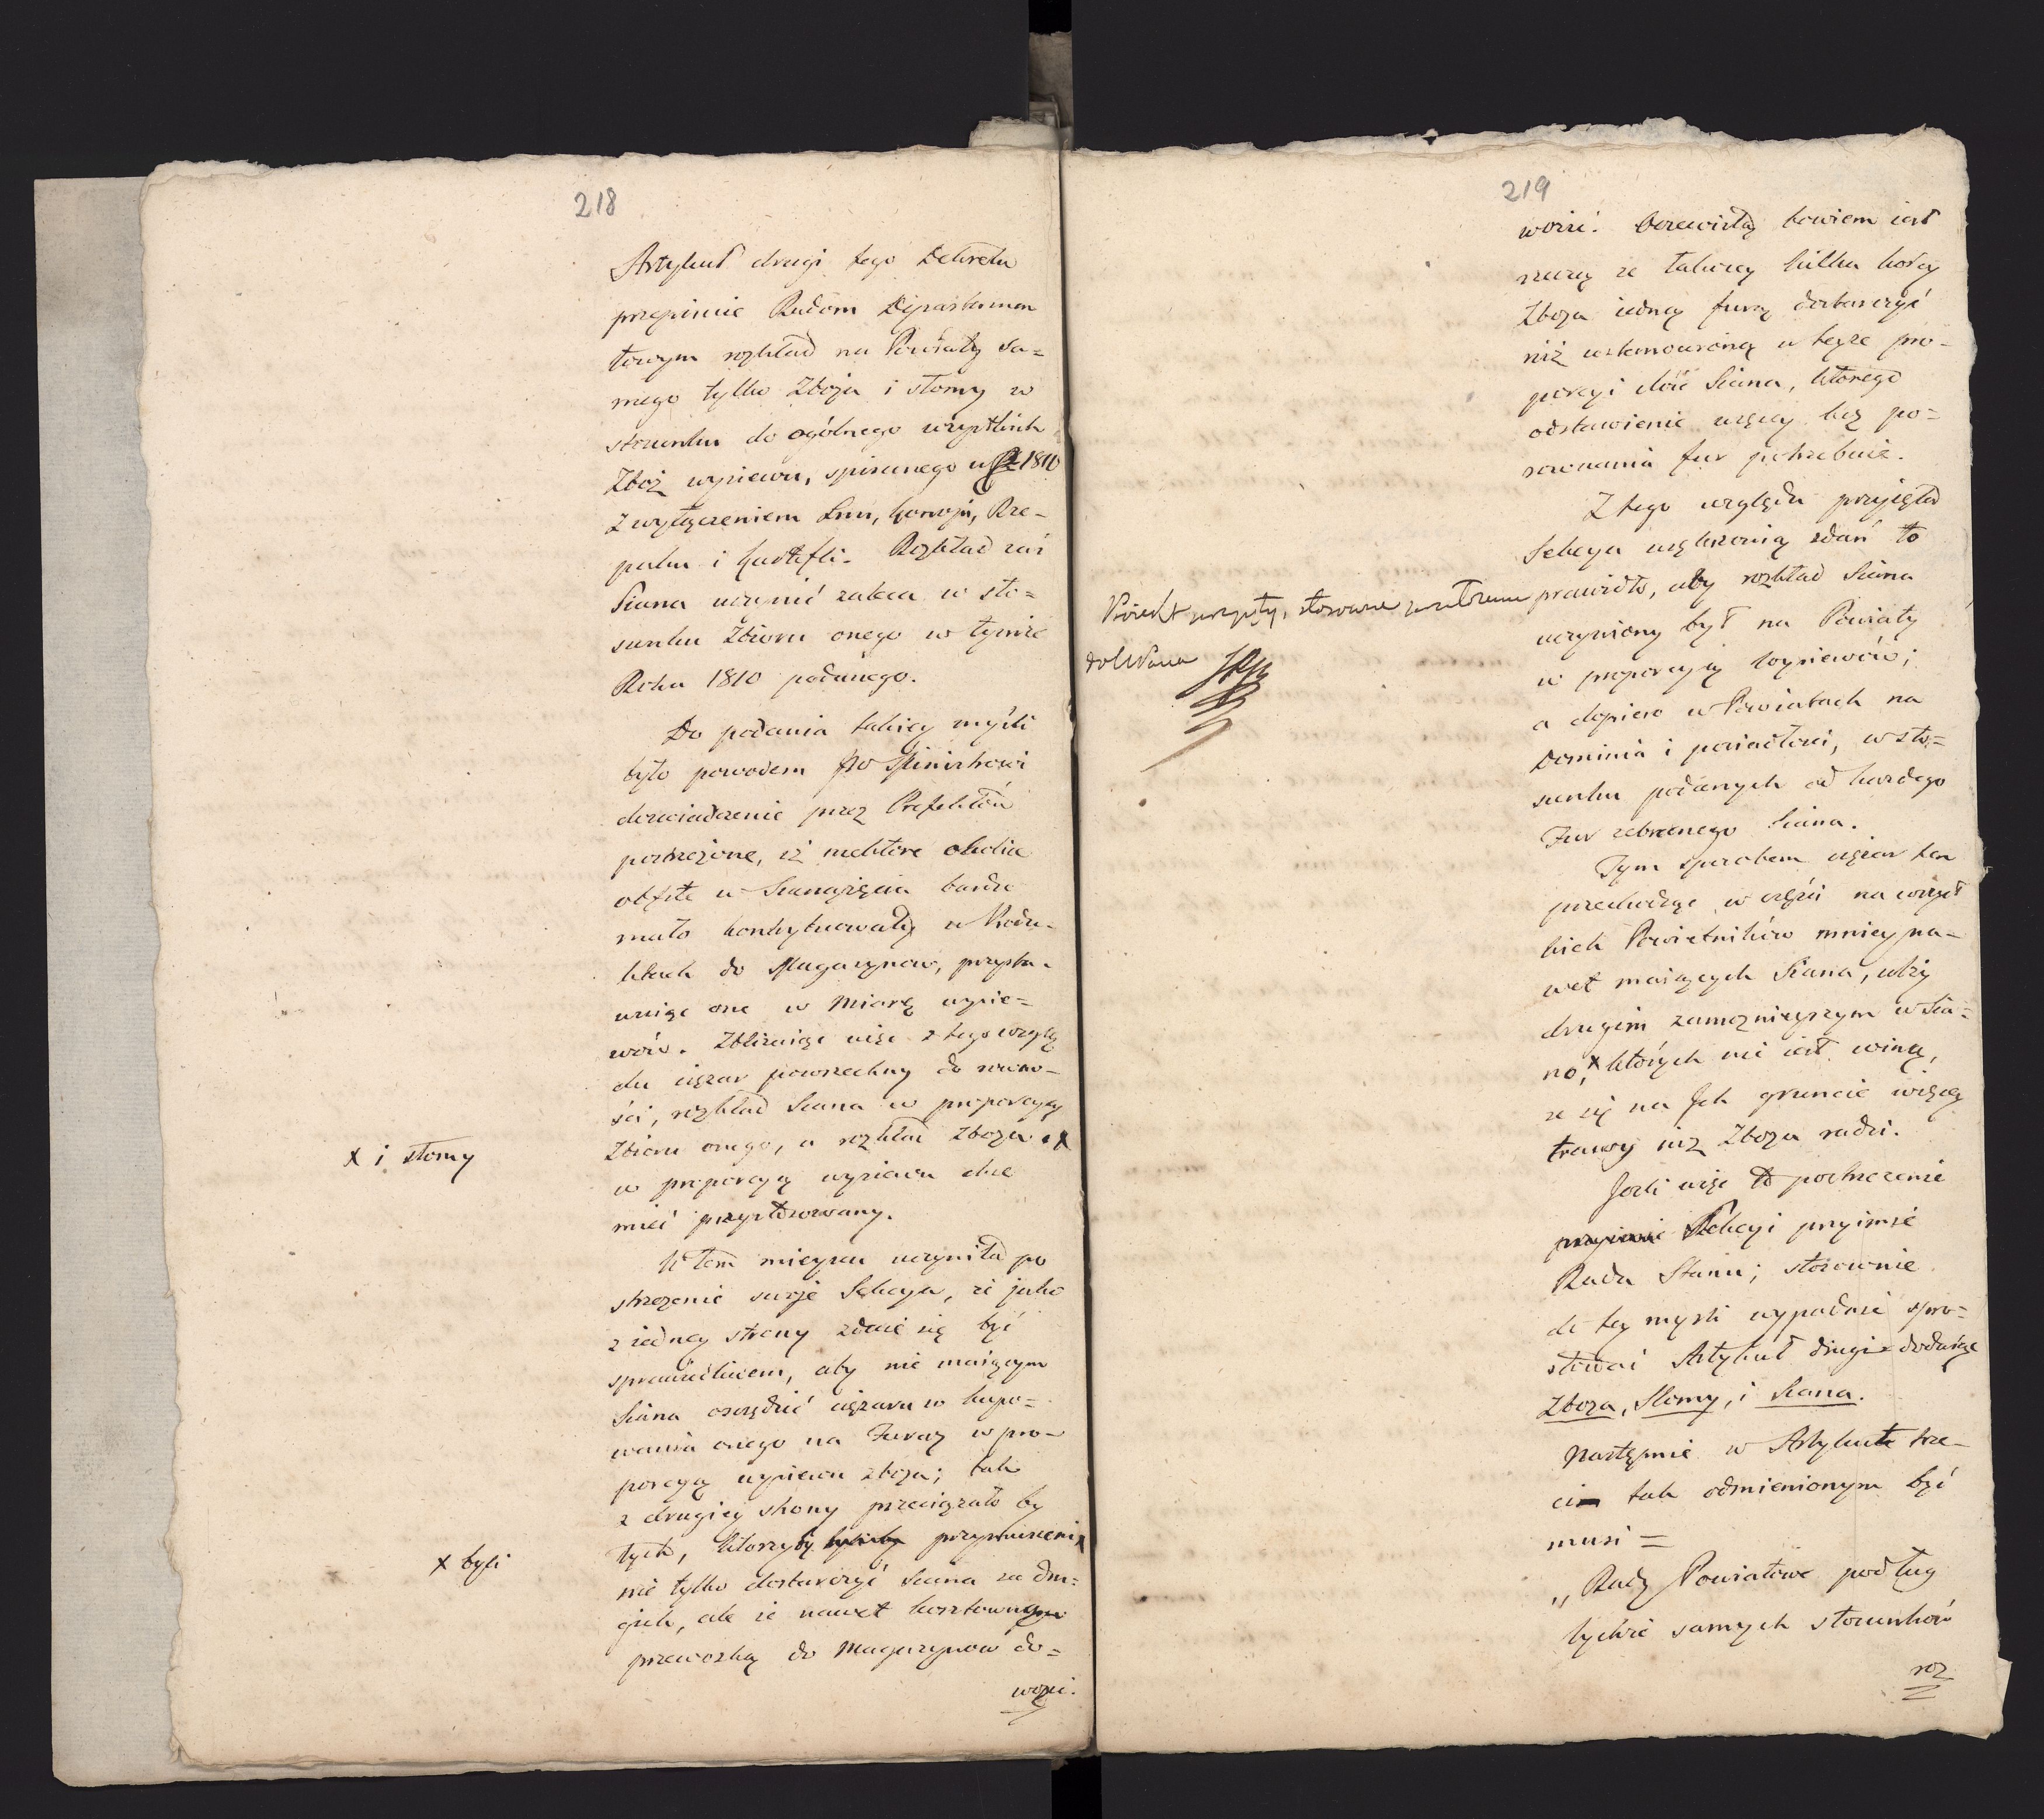 218
Artykuł drugi tego Dekretu
przepisuie Radom Departamen
towym rozkład na Powiaty sa=
mego tylko Zboża i słomy w
stosunku do ogólnego wszystkich
Zbóż wysiewu, spisanego w R. 1810
z wyłączeniem Lnu, konopi, Rze-
paku i kartofli. Rozkład zaś
Siana uczynić zaleca w sto=
sunku Zbioru onego w tymże
Roku 1810 podanego.
Do podania takiey myśli
było powodem JW Ministrowi
doświadczenie przez Prefektów
postrzeżone, iż niektóre okolice
obfite w Siano, zięcia bardzo
mało kontrybuowały w Podat-
kach do Magazynow, przysta-
wuiąc one w miarę wysie=
wów. Zbliżaiąc więc z tego wzglę
du ciężar powszechny do równo-
ści, rozkład Siana w proporcyą
Zbioru onego, a rozkład Zboża x
x i słomy
w proporcyą wysiewu chce
mieć przystosowany.
W tem mieyscu uczyniła po
strzeżenie swoje Sekcya, że jako
z iedney strony zdaie się być
sprawiedliwem, aby nie maiącym
Siana oszczędzić ciężaru w kupo=
waniu onego na Furaż w pro-
porcyą wysiewu zboża; tak
z drugiey strony przeciążało by
tych, którzyby przymuszeni x
x byli
nie tylko dostarczyć Siana za dru=
gich, ale ie nawet kosztownym
przewozką do Magazynow do=
wozić.
219
wozić. Oczewistą bowiem iest
rzeczą że łatwiey kilka korcy
Zboża iedną furą dostarczyć
niż ustanowioną w teyże pro-
porcyi ilość Siana, którego
odstawienie więcey bez po=
rownania fur potrzebuie.
Z tego względu przyięła
Sekcya większością zdań to
prawidło, aby rozkład Siana
uczyniony był na Powiaty
w proporcyą wysiewów;
a dopiero w Powiatach na
Dominia i posiadłości, w sto=
sunku podanych od każdego
Fur zebranego Siana.
Proiekt przyięty, stosowne
JP
Tym sposobem ciężar ten
przechodząc w części na wszyst
kich Powietników mniey na-
wet maiących Siana, ulży
drugim zamoznieyszym w Sia=
no, x których nie iest winą,
że się na Jch gruncie więcey
trawy niż Zboża rodzi.
Jeżli więc to postrzeżenie
Sekcyi przyimie
Rada Stanu; stosownie
do tey myśli wypadnie spro=
stować Artykuł drugi = dodaiąc
Zboża, Słomy, i Siana.
Następnie w Artykule trze-
cim tak odmienionym być
musi =
„Rady Powiatowe podług
tychże samych stosunków
roz